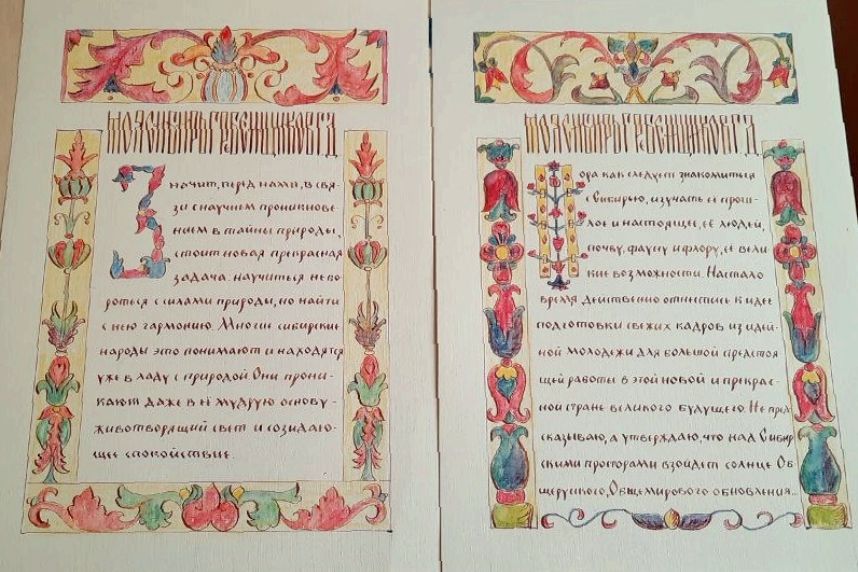 МОЯ СИБИРЬ ГРЕБЕНЩИКОВ Г Д
Значит, перед нами, в свя-
зи с научнем проникнове-
нием в тайны природы,
стоит новая прекрасная
задача. научиться не бо-
роться с силами природы, но найти
с нею гармонию. Многие сибирские
народы это понимают и находятся
уже в ладу с природой. Они прони-
кают даже в её мудрую основу-
животворящий свет и созидаю-
щее спокойствие.
МОЯ СИБИРЬ ГРЕБЕНЩИКОВ Г Д
Пора как следует знакомиться
с Сибирью, изучать её прош-
лое и настоящее, её людей,
почву, фауну и флору, её вели-
кие возможности. Настало
время действенно отнестись к идее
подготовки свежих кадров из идей-
ной молодежи для большой предстоя
щей работы в этой новой и прекрас-
ной стране великого будущего. Не пред-
сказываю, а утверждаю, что над Сибир
скими просторами взойдет солнце Об-
щерусского, Общемирового обновления...